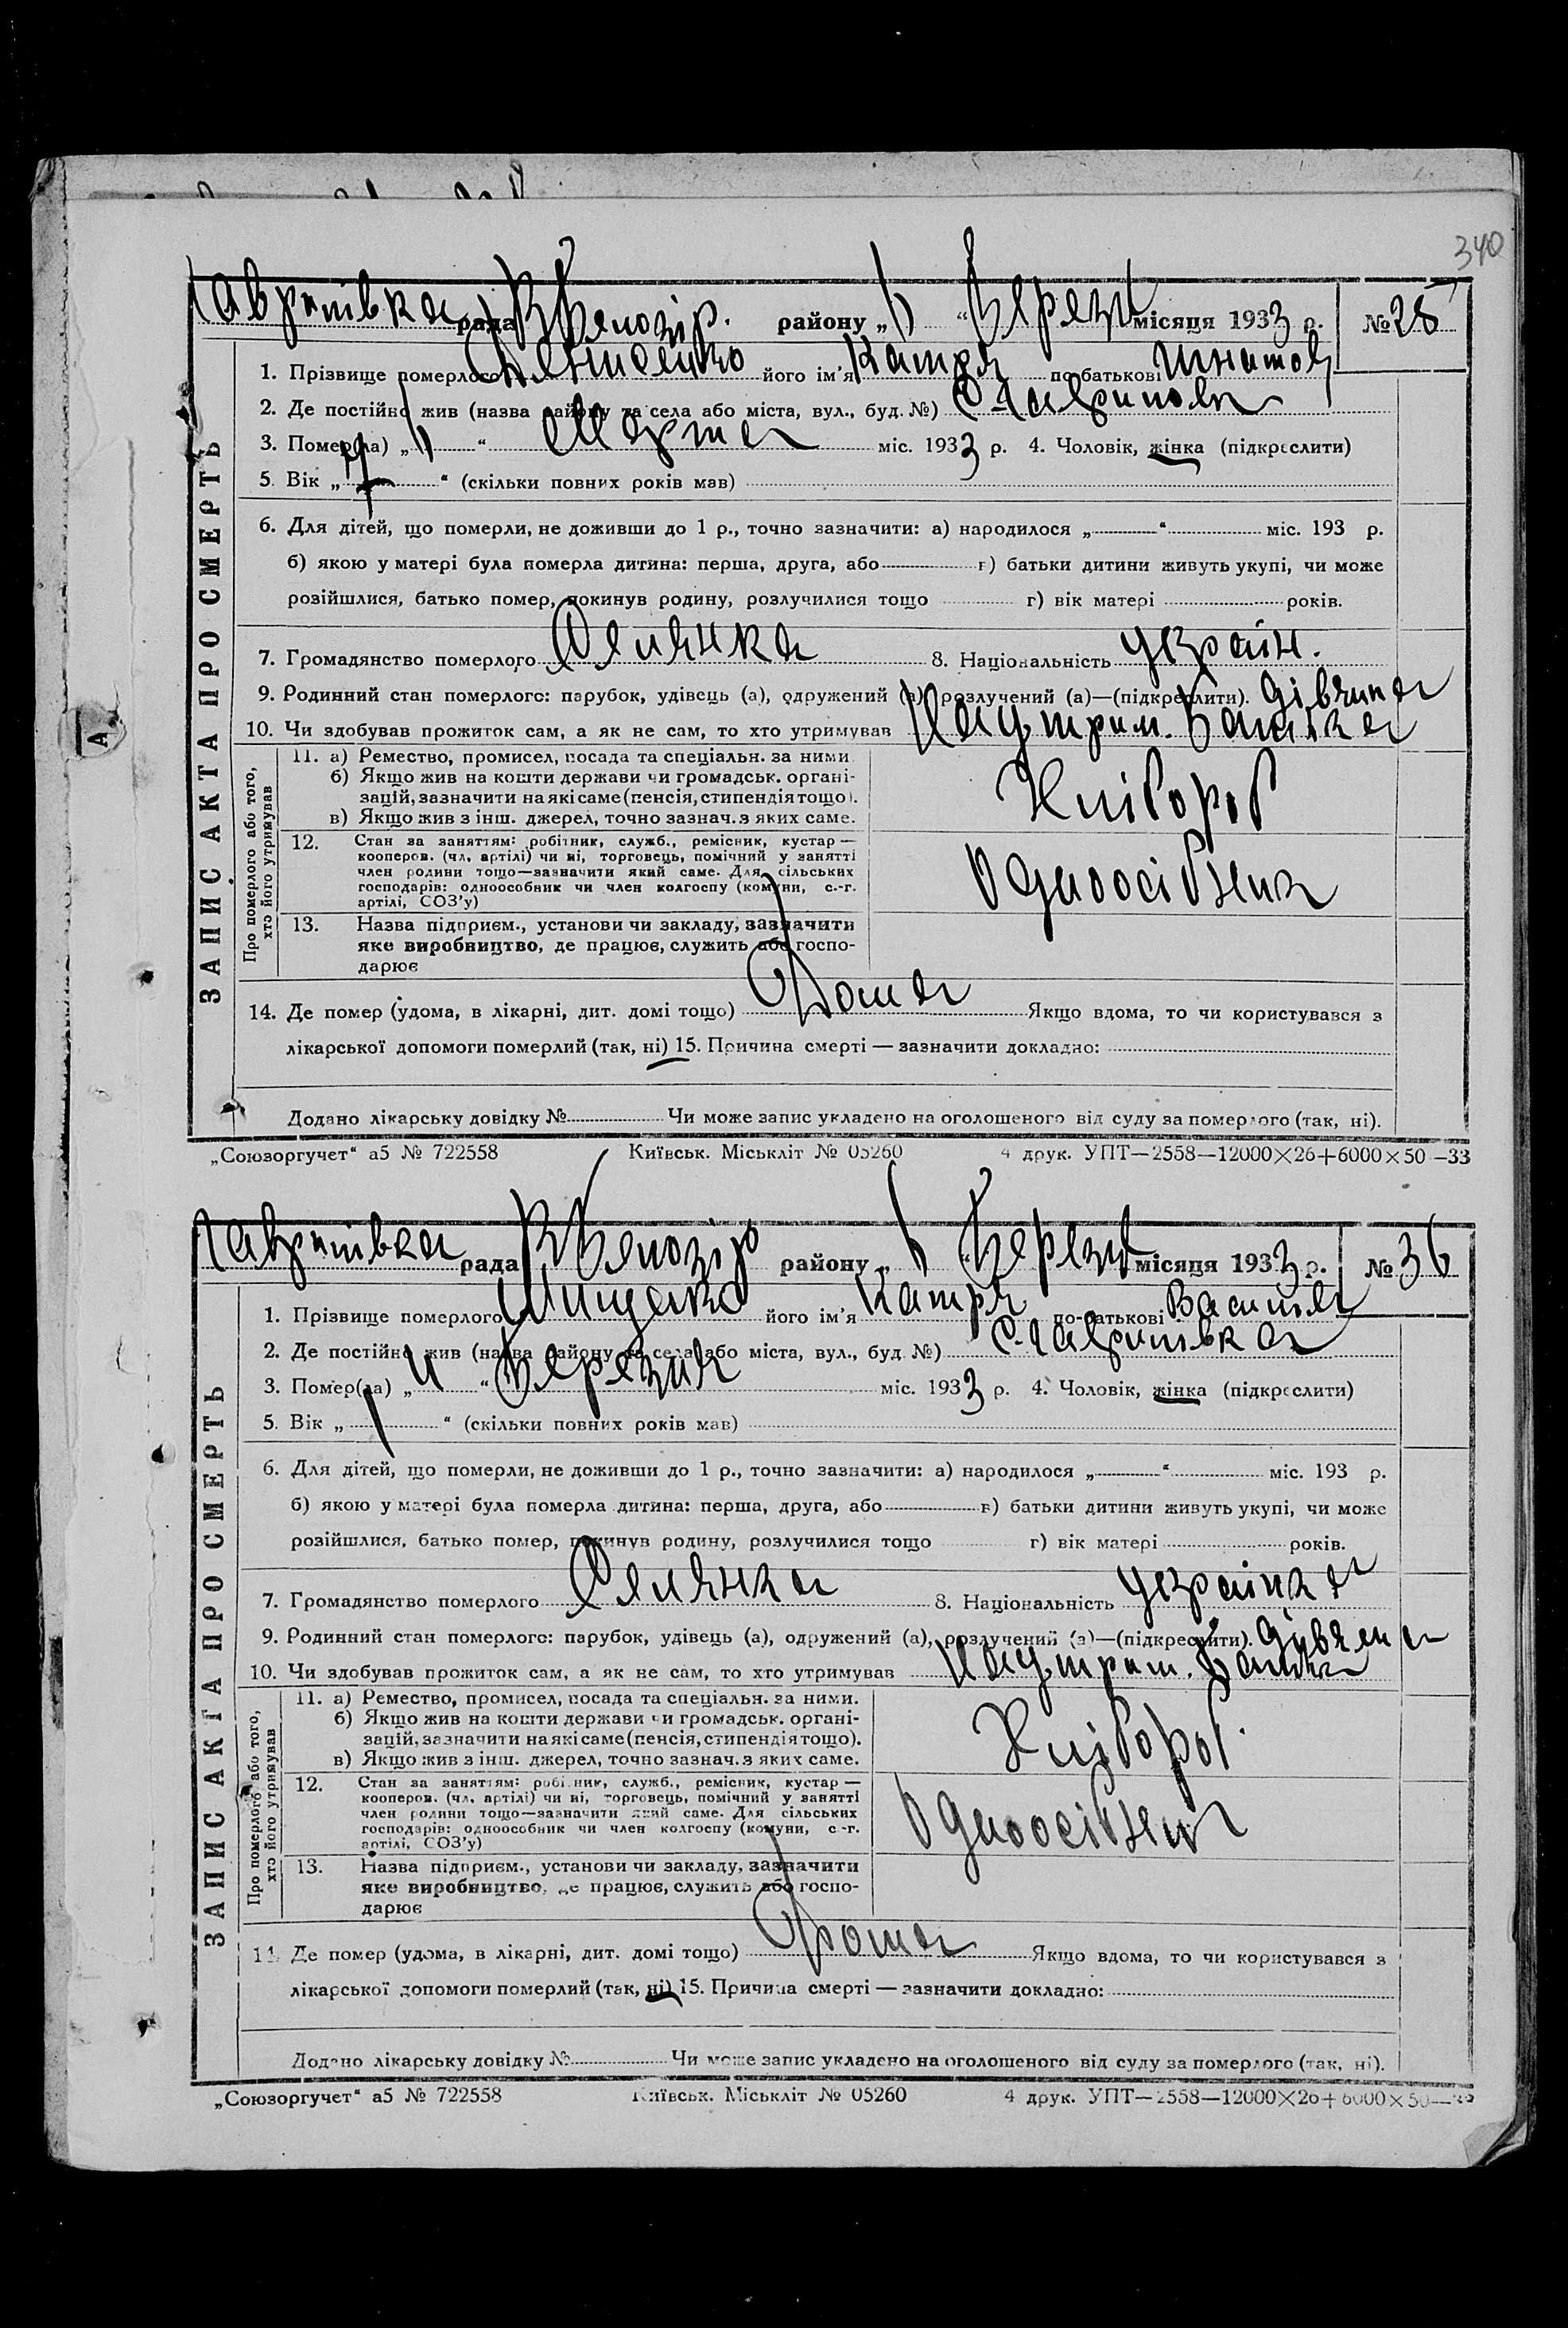 340
Гавронівка рада В Білозір. району „ “ Березня місяця 1933 р. № 28
ЗАПИС АКТА ПРО СМЕРТЬ
1. Прізвище померлого Денисенко його ім'я Катря по-батькові
2. Де постійно жив (назва району та села або міста, вул., буд. №) с.
3. Помер(ла) „ “ Марта міс. 1933 р. 4. Чоловік, жінка (підкреслити)
5. Вік „ “ (скільки повних років мав)
6. Для дітей, що померли, не доживши до 1 р., точно зазначити: а) народилося „ “ міс. 193 р.
б) якою у матері була померла дитина: перша, друга, або в) батьки дитини живуть укупі, чи може
розійшлися, батько помер, покинув родину, розлучилися тощо г) вік матері років.
7. Громадянство померлого Селянка 8. Національність україн.
9. Родинний стан померлого: парубок, удівець (а), одружений (а), розлучений (а)—(підкреслити). дівчина
10. Чи здобував прожиток сам, а як не сам, то хто утримував На утрим. Батька
Про померлого або того, хто його утримував
11. а) Ремество, промисел, посада та спеціальн. за ними
б) Якщо жив на кошти держави чи громадськ. органі-
зацій, зазначити на які саме (пенсія, стипендія тощо).
в) Якщо жив з інш. джерел, точно зазнач. з яких саме.
Хлібороб
12. Стан за заняттям: робітник, служб., ремісник, кустар —
кооперов. (чл. артілі) чи ні, торговець, помічний у занятті
член родини тощо—зазначити який саме. Для сільських
господарів: одноосібник чи член колгоспу (комуни, с.-г.
артілі, СОЗ'у)
Одноосібник
13. Назва підприєм., установи чи закладу, зазначити
яке виробництво, де працює, служить або госпо-
дарює
14. Де помер (удома, в лікарні, дит. домі тощо) Дома Якщо вдома, то чи користувався з
лікарської допомоги померлий (так, ні) 15. Причина смерті — зазначити докладно:
Додано лікарську довідку № Чи може запис укладено на оголошеного від суду за померлого (так, ні).
„Союзоргучет“ а5 № 722558 Київськ. Міськліт № 05260 4 друк. УПТ—2558—12000×26+6000×50—33
рада В Білозір району „ “ Березня місяця 1933 р. № 36
ЗАПИС АКТА ПРО СМЕРТЬ
1. Прізвище померлого його ім'я Катря по-батькові Василів
2. Де постійно жив (назва району та села або міста, вул., буд. №) с.
3. Помер(ла) „ “ Березня міс. 1933 р. 4. Чоловік, жінка (підкреслити)
5. Вік „ “ (скільки повних років мав)
6. Для дітей, що померли, не доживши до 1 р., точно зазначити: а) народилося „ “ міс. 193 р.
б) якою у матері була померла дитина: перша, друга, або в) батьки дитини живуть укупі, чи може
розійшлися, батько помер, покинув родину, розлучилися тощо г) вік матері років.
7. Громадянство померлого Селянка 8. Національність українка
9. Родинний стан померлого: парубок, удівець (а), одружений (а), розлучений (а)—(підкреслити). дівчина
10. Чи здобував прожиток сам, а як не сам, то хто утримував На утрим. Батька
Про померлого або того, хто його утримував
11. а) Ремество, промисел, посада та спеціальн. за ними.
б) Якщо жив на кошти держави чи громадськ. органі-
зацій, зазначити на які саме (пенсія, стипендія тощо).
в) Якщо жив з інш. джерел, точно зазнач. з яких саме.
Хлібороб.
12. Стан за заняттям: робітник, служб., ремісник, кустар —
кооперов. (чл. артілі) чи ні, торговець, помічний у занятті
член родини тощо—зазначити який саме. Для сільських
господарів: одноосібник чи член колгоспу (комуни, с.-г.
артілі, СОЗ'у)
Одноосібник
13. Назва підприєм., установи чи закладу, зазначити
яке виробництво, де працює, служить або госпо-
дарює
14. Де помер (удома, в лікарні, дит. домі тощо) Дома Якщо вдома, то чи користувався з
лікарської допомоги померлий (так, ні) 15. Причина смерті — зазначити докладно:
Додано лікарську довідку № Чи може запис укладено на оголошеного від суду за померлого (так, ні).
„Союзоргучет“ а5 № 722558 Київськ. Міськліт № 05260 4 друк. УПТ—2558—12000×26+6000×50—33